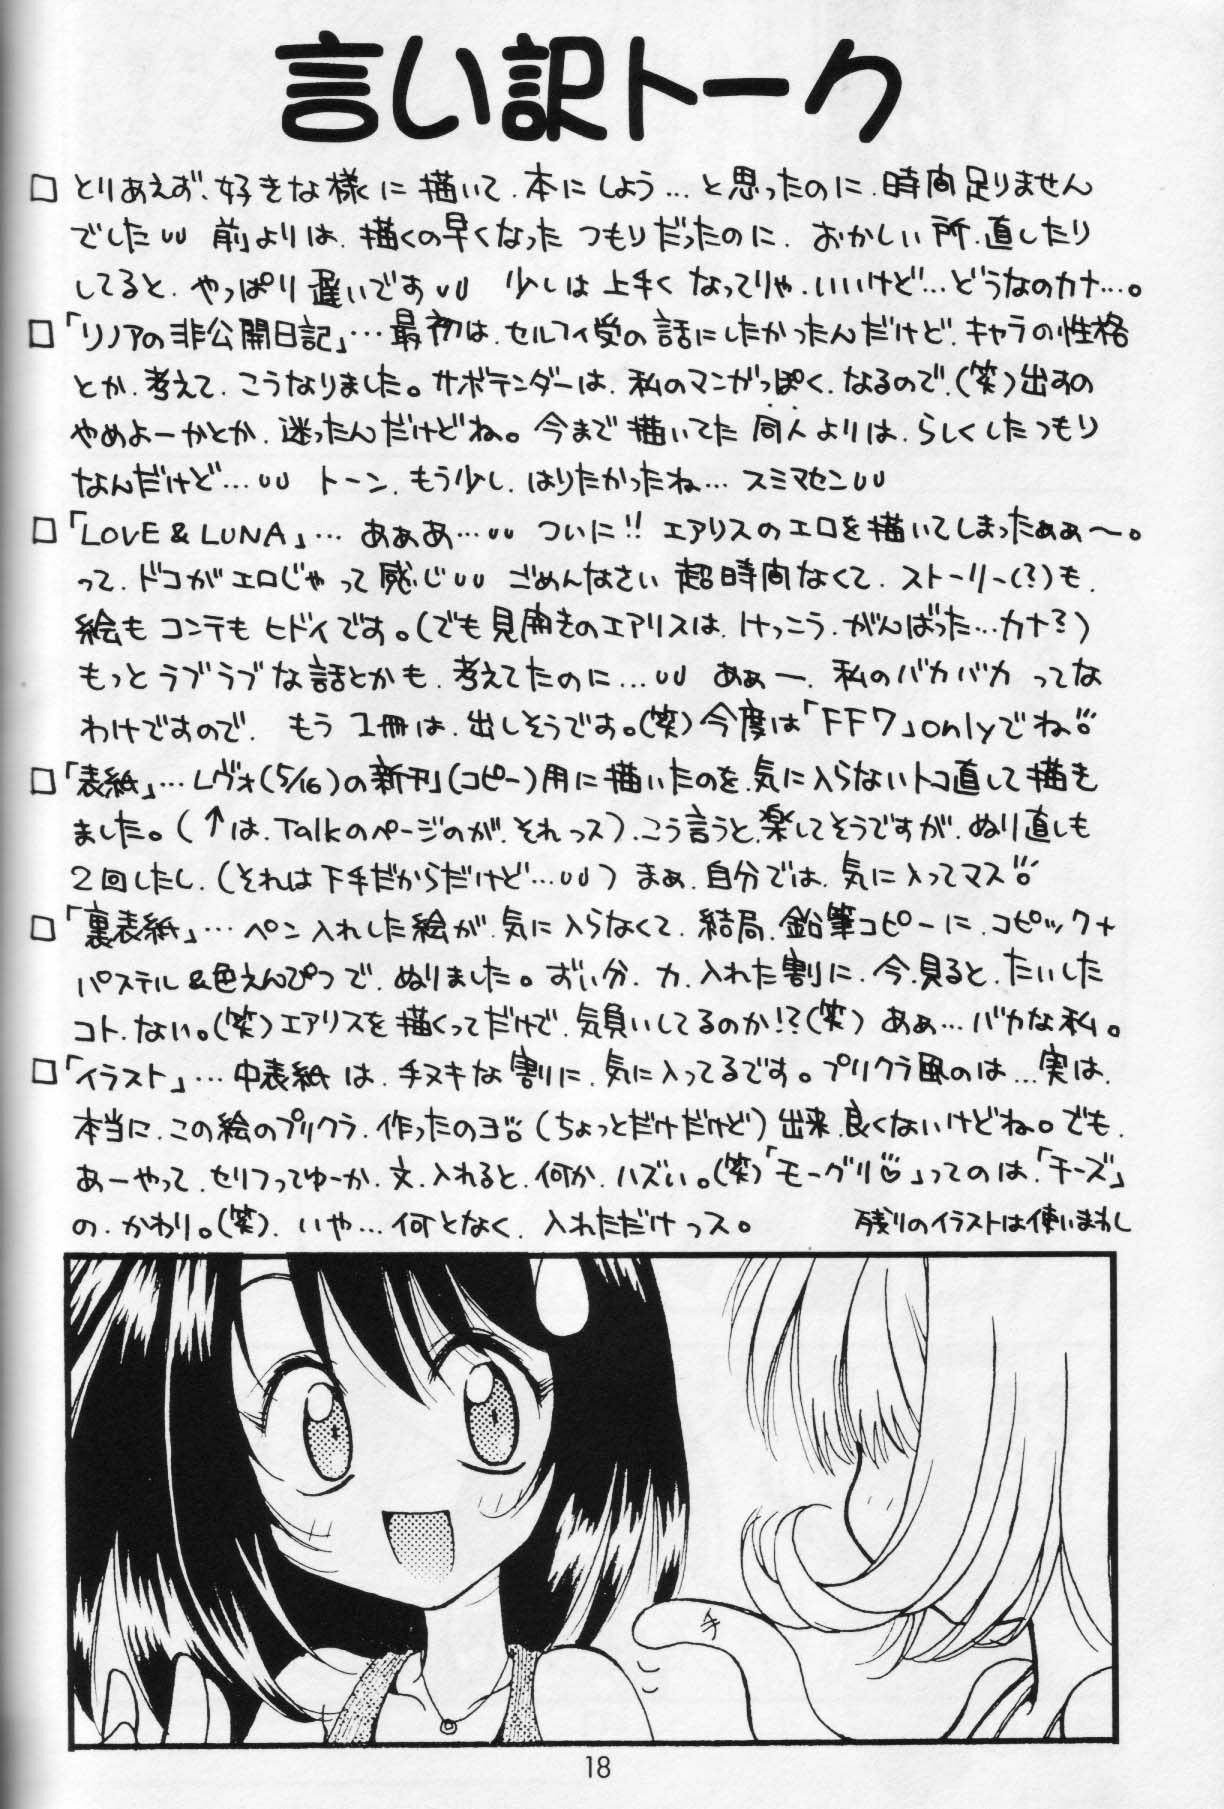 言い訳トーク
□とりあえず、好きな様に描いて、本にしよう…と思ったのに、時間足りません
でした︶︶ 前よりは、描くの早くなったつもりだったのに、おかしい所、直したり
してると、やっぱり遅いです︶︶ 少しは上手くなってりゃ、いいけど…どうなのカナ…。
□「リノアの非公開日記」…最初は、セルフィ受の話にしたかったんだけど、キャラの性格
とか、考えて、こうなりました。サボテンダーは、私のマンガっぽく、なるので、(笑)出すの
やめよーかとか、迷ったんだけどね。今まで描いてた同人よりは、らしくしたつもり
なんだけど…︶︶ トーン、もう少し、はりたかったね…スミマセン︶︶
□「LOVE & LUNA」…あぁあ…︶︶ ついに!! エアリスのエロを描いてしまったぁぁ〜。
って、ドコがエロじゃって感じ︶︶ ごめんなさい 超時間なくて、ストーリー(?)も、
絵もコンテもヒドイです。(でも見開きのエアリスは、けっこう、がんばった…カナ?)
もっとラブラブな話とかも、考えてたのに…︶︶ あぁー、私のバカバカってな
わけですので、もう1冊は、出しそうです。(笑)今度は「FF7」onlyでね
□「表紙」…レヴォ(5/16)の新刊(コピー)用に描いたのを、気に入らないトコ直して描き
ました。(↑は、Talkのページのが、それっス)、こう言うと、楽してそうですが、ぬり直しも
2回したし、(それは下手だからだけど…︶︶) まぁ、自分では、気に入ってマス
□「裏表紙」…ペン入れした絵が、気に入らなくて、結局、鉛筆コピーに、コピック+
パステル&色えんぴつで、ぬりました。ずいぶん、力、入れた割に、今、見ると、たいした
コト、ない。(笑)エアリスを描くってだけで、気負いしてるのか!?(笑) あぁ…バカな私。
□「イラスト」…中表紙は、手ヌキな割に、気に入ってるです。プリクラ風のは…実は、
本当に、この絵のプリクラ、作ったのヨ(ちょっとだけだけど)出来、良くないけどね。でも、
あーやって、セリフってゆーか、文、入れると、何か、ハズい。(笑)「モーグリ♡」ってのは、「チーズ」
の、かわり。(笑)、いや…何となく、入れただけっス。
残りのイラストは使いまわし
手
18